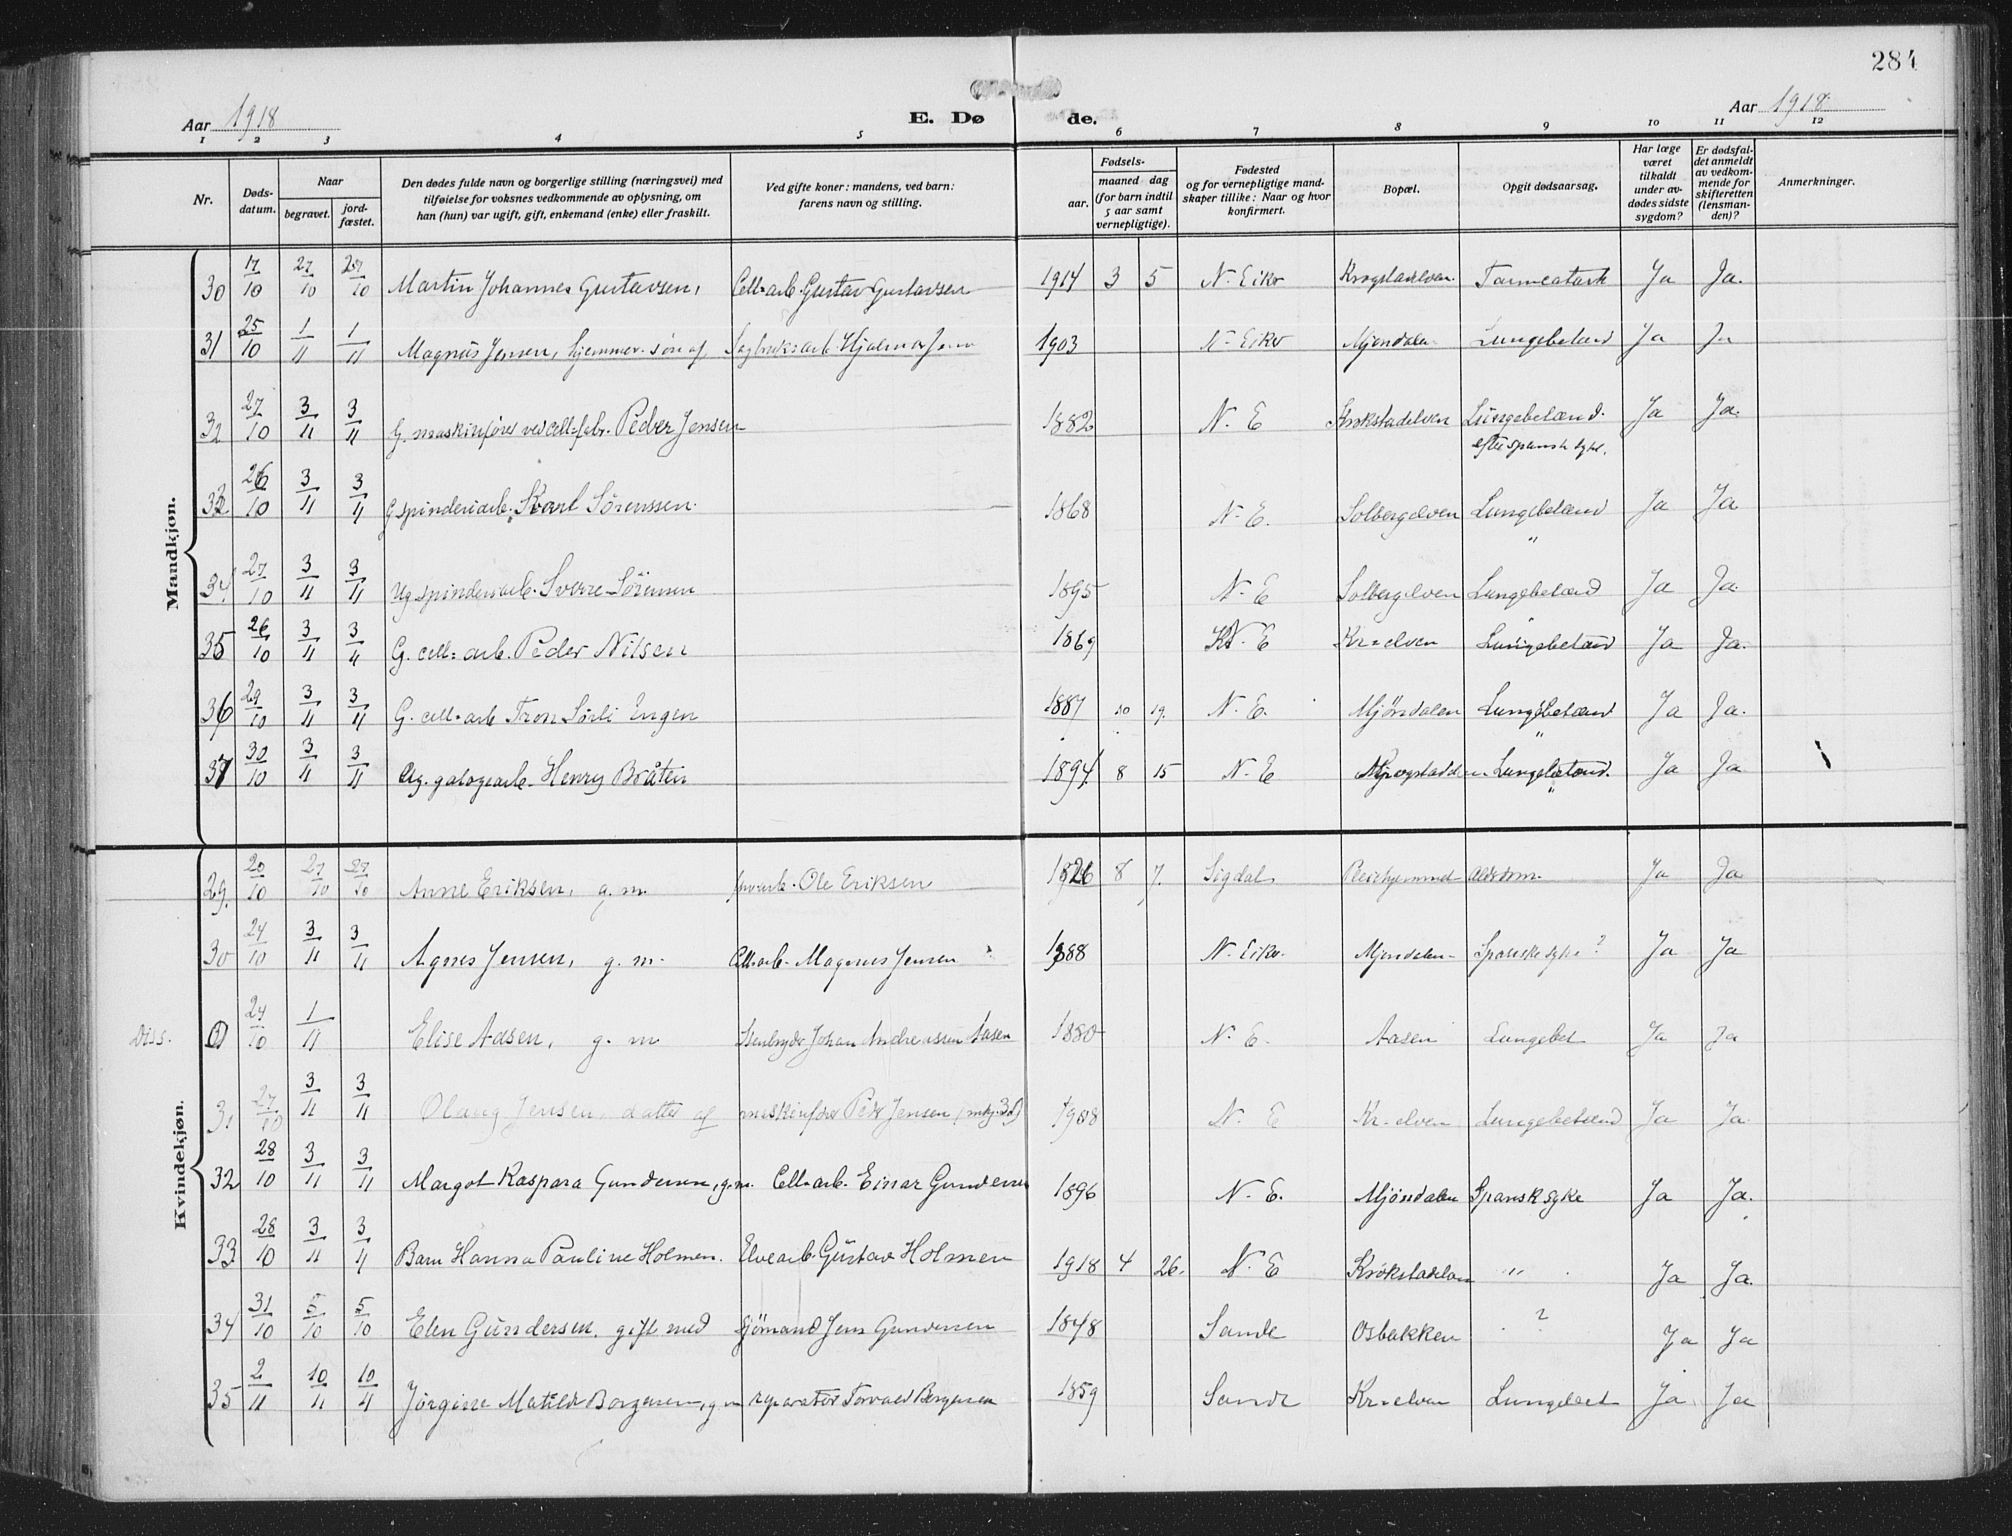 284
Aar 1918 E. Dø de. Aar 1918
1 2 3 4 5 6 7 8 9 10 11 12
Nr. Døds-datum. Naar begravet. jord-fæstet. Den dødes fulde navn og borgerlige stilling (næringsvei) med tilføielse for voksnes vedkommende av oplysning, om han (hun) var ugift, gift, enkemand (enke) eller fraskilt. Ved gifte koner: mandens, ved barn: farens navn og stilling. Fødsels- aar. maaned dag (for barn indtil 5 aar samt vernepligtige). Fødested og for vernepligtige mand-skaper tillike: Naar og hvor konfirmert. Bopæl. Opgit dødsaarsag. Har læge været tilkaldt under av-dødes sidste sygdom? Er dødsfal-det anmeldt av vedkom-mende for skifteretten (lensman-den)? Anmerkninger.
Mandkjøn.
30 17/10 27/10 27/10 Martin Johannes Gustavsen, Cell=arb. Gustav Gustavsen 1914 3 5 N. Eiker Krogstadelven Ja Ja.
31 25/10 1/11 1/11 Magnus Jensen, hjemmev. søn af Sagbruksarb. Hjalmar Jensen 1903 N. Eiker Mjøndalen Lungebetænd Ja Ja
32 27/10 3/11 3/11 G. maskinfører ved cell=fabr. Peder Jensen 1882 N. E Krokstadelven Lungebetænd. Ja Ja.
efter spansk syke.
33 26/10 3/11 3/11 G spinderiarb. Karl Sörenssen. 1868 N. E. Solbergelven Lungebetænd Ja Ja
34 27/10 3/11 3/11 Ug spinderiarb. Sverre Sörensen 1895 N. E Solbergelven Lungebetænd Ja Ja.
35 26/10 3/11 3/11 G. cell=arb. Peder Nilsen 1869 N. E Kr=elven Lungebetænd Ja Ja.
36 29/10 3/11 3/11 G. cell=arb Tron Sörli Engen 1887 10 19. N. E. Mjöndalen Lungebetænd Ja Ja.
37 30/10 3/11 3/11 Ug. galogearb. Henry Bråten 1894 8 15 N. E Lungebetænd. Ja Ja
Kvindekjøn.
29. 20/10 27/10 27/10 Anne Eriksen, g. m. Ole Eriksen 1826 8 7. Sigdal Pleiehjemmet Alderdom. Ja Ja
30 24/10 3/11 3/11 Agnes Jensen, g. m. Cell=arb. Magnus Jensen 1888 N. Eiker. Mjøndalen Spanske syke ? Ja Ja
Diss. 24/10 1/11 Elise Aasen, g. m Stenbryder Johan Andreassen Aasen 1880 N. E. Aasen Lungebet Ja Ja
31 27/10 3/11 3/11 Olaug Jensen, datter af maskinfører Peder Jensen (mkj. 32) 1908 N. E Kr=elven Lungebetænd Ja Ja.
32 28/10 3/11 3/11 Margot Kaspara Gundersen, g.m. Cell=arb. Einar Gundersen 1896 N. E. Mjöndalen Spansk syke Ja Ja.
33 28/10 3/11 3/11 Barn Hanna Pauline Holmen. Elvearb. Gustav Holmen 1918 4 26. N. E Krokstadelven " Ja Ja.
34 31/10 5/10 5/10 Elen Gundersen. gift med sjömand Jens Gundersen 1848 Sande Osbakken ? Ja Ja
35 2/11 10/11 10/11 Jörgine Matilde Borgersen, g. m reparatör Torvald Borgersen 1859 Sande Kr=elven Lungebet Ja Ja